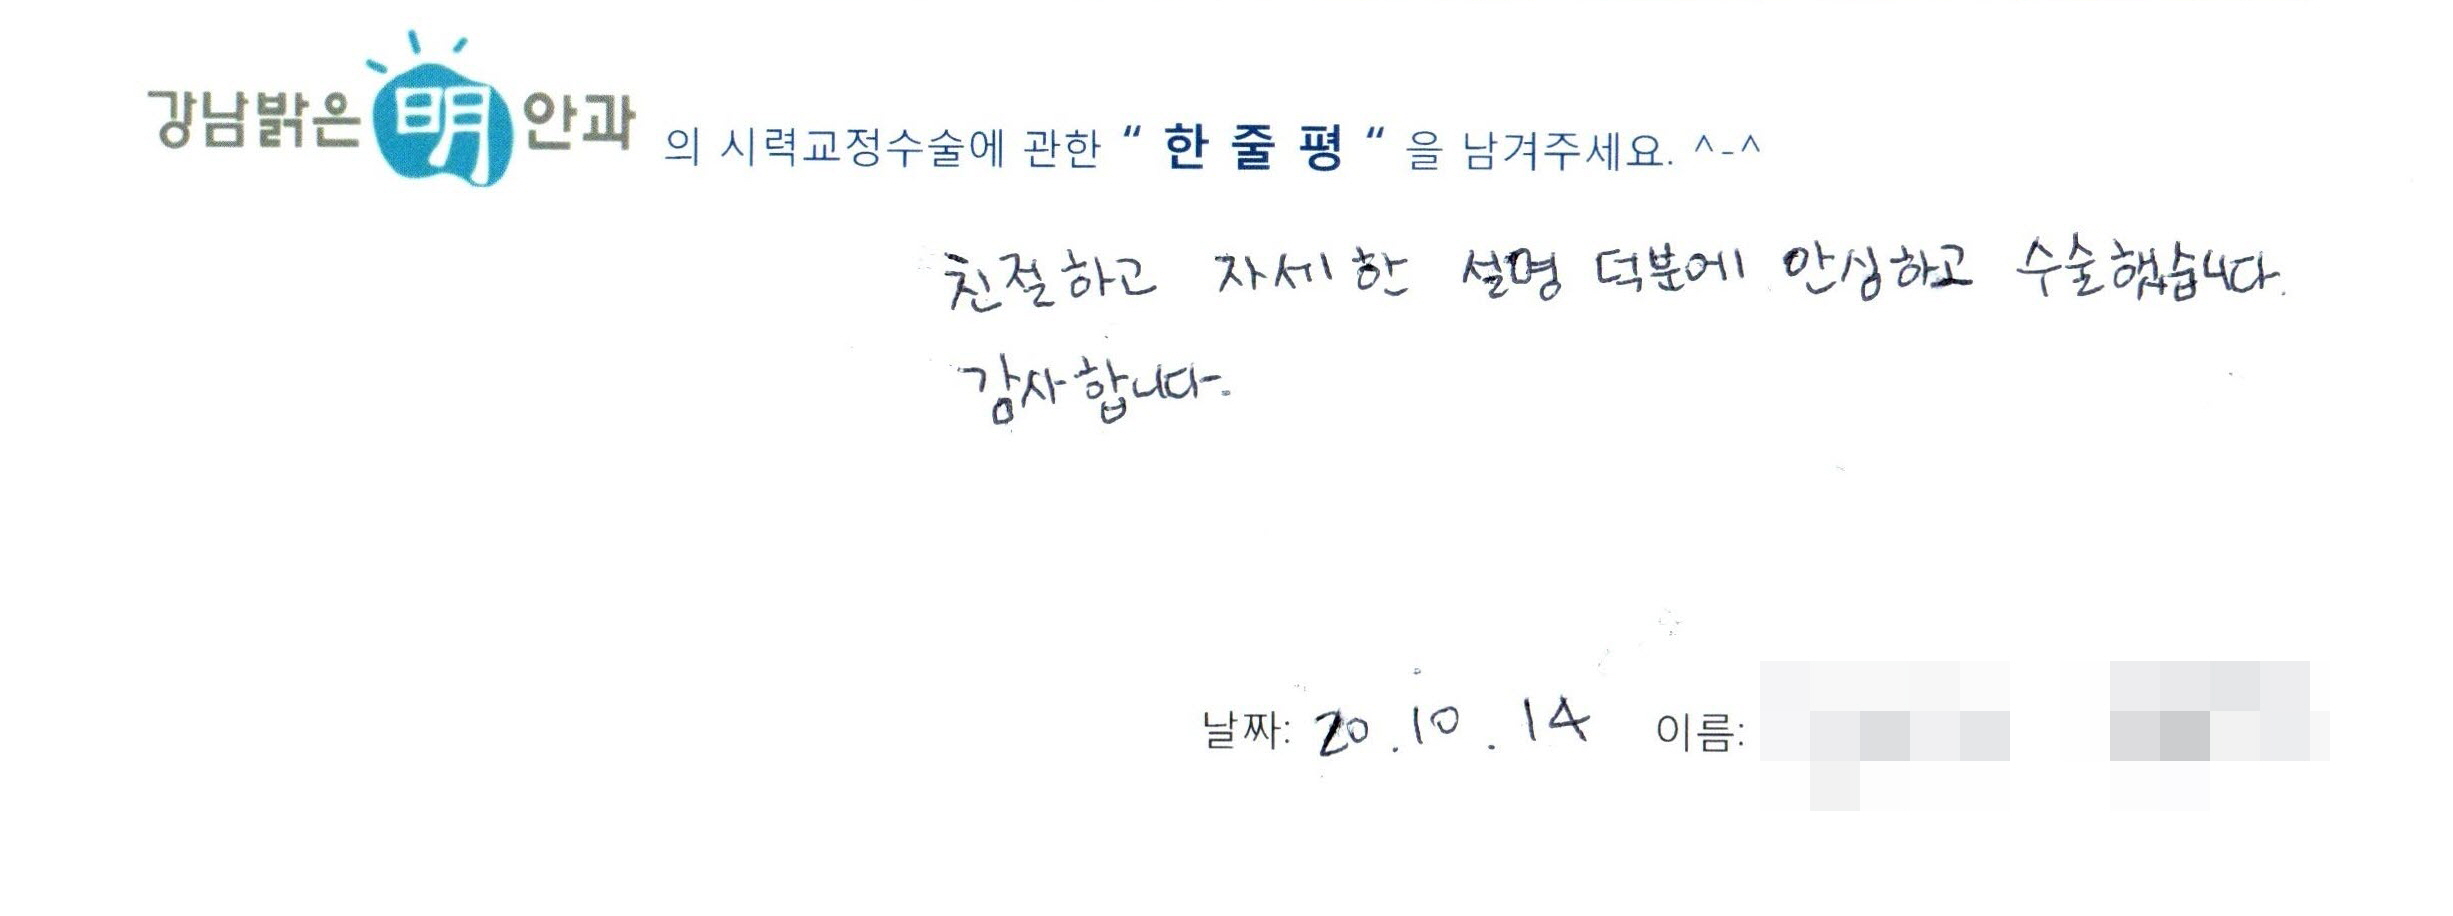 강남밝은 明 안과 의 시력교정수술에 관한 “ 한 줄 평 “ 을 남겨주세요. ^-^
친절하고 자세한 설명 덕분에 안심하고 수술했습니다.
감사합니다.
날짜: 20.10.14 이름: